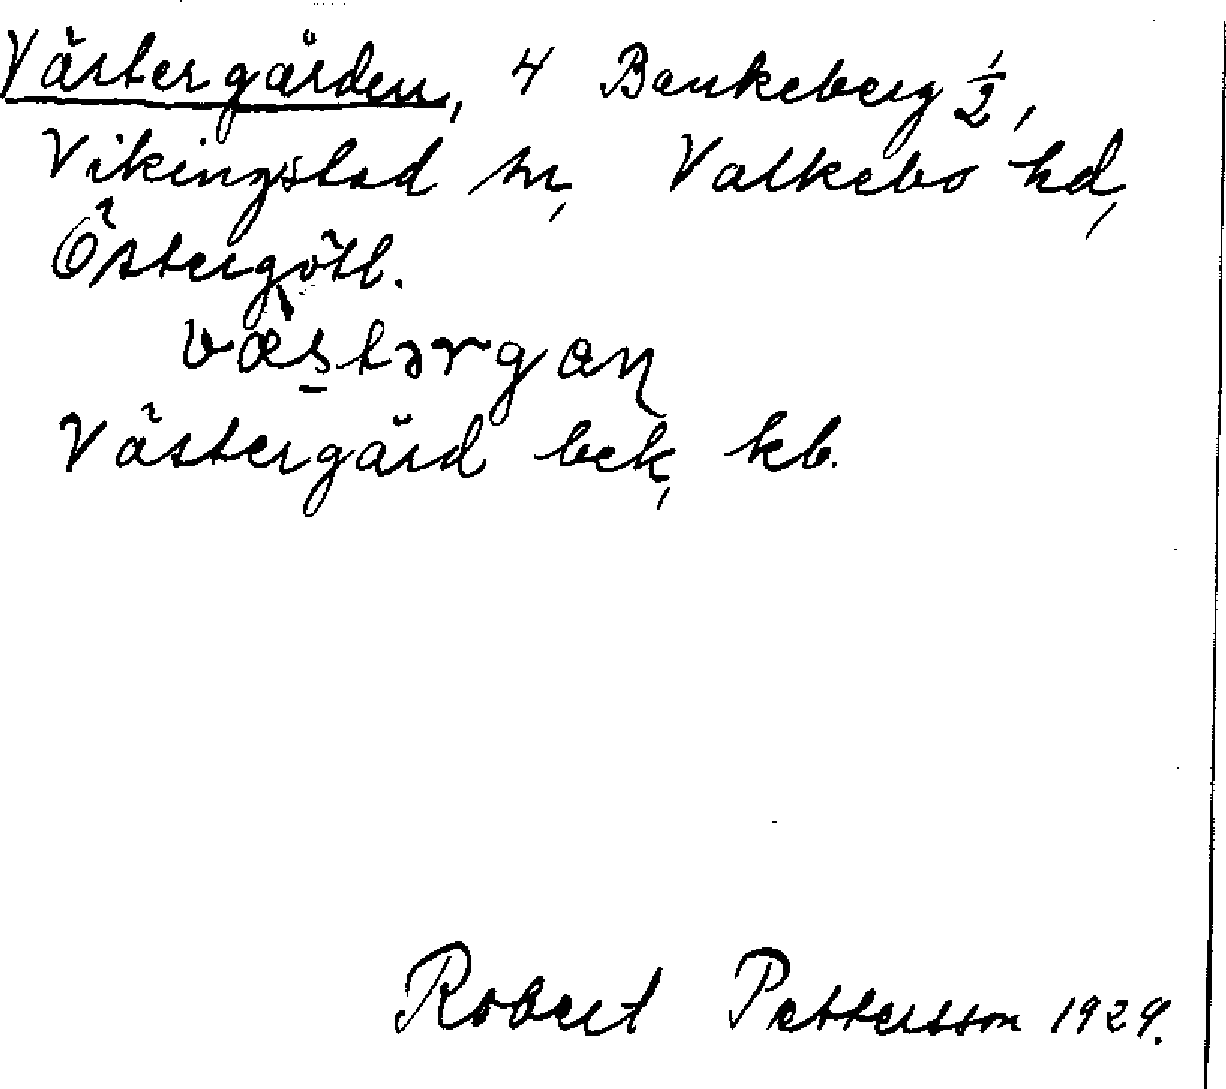 Västergården, 4 Bankeberg 1/2,
Vikingstad sn, Valkebo hd,
Östergötl.
væ̀s̠tərgan
Västergård bek, kb.
Robert Pettersson 1929.